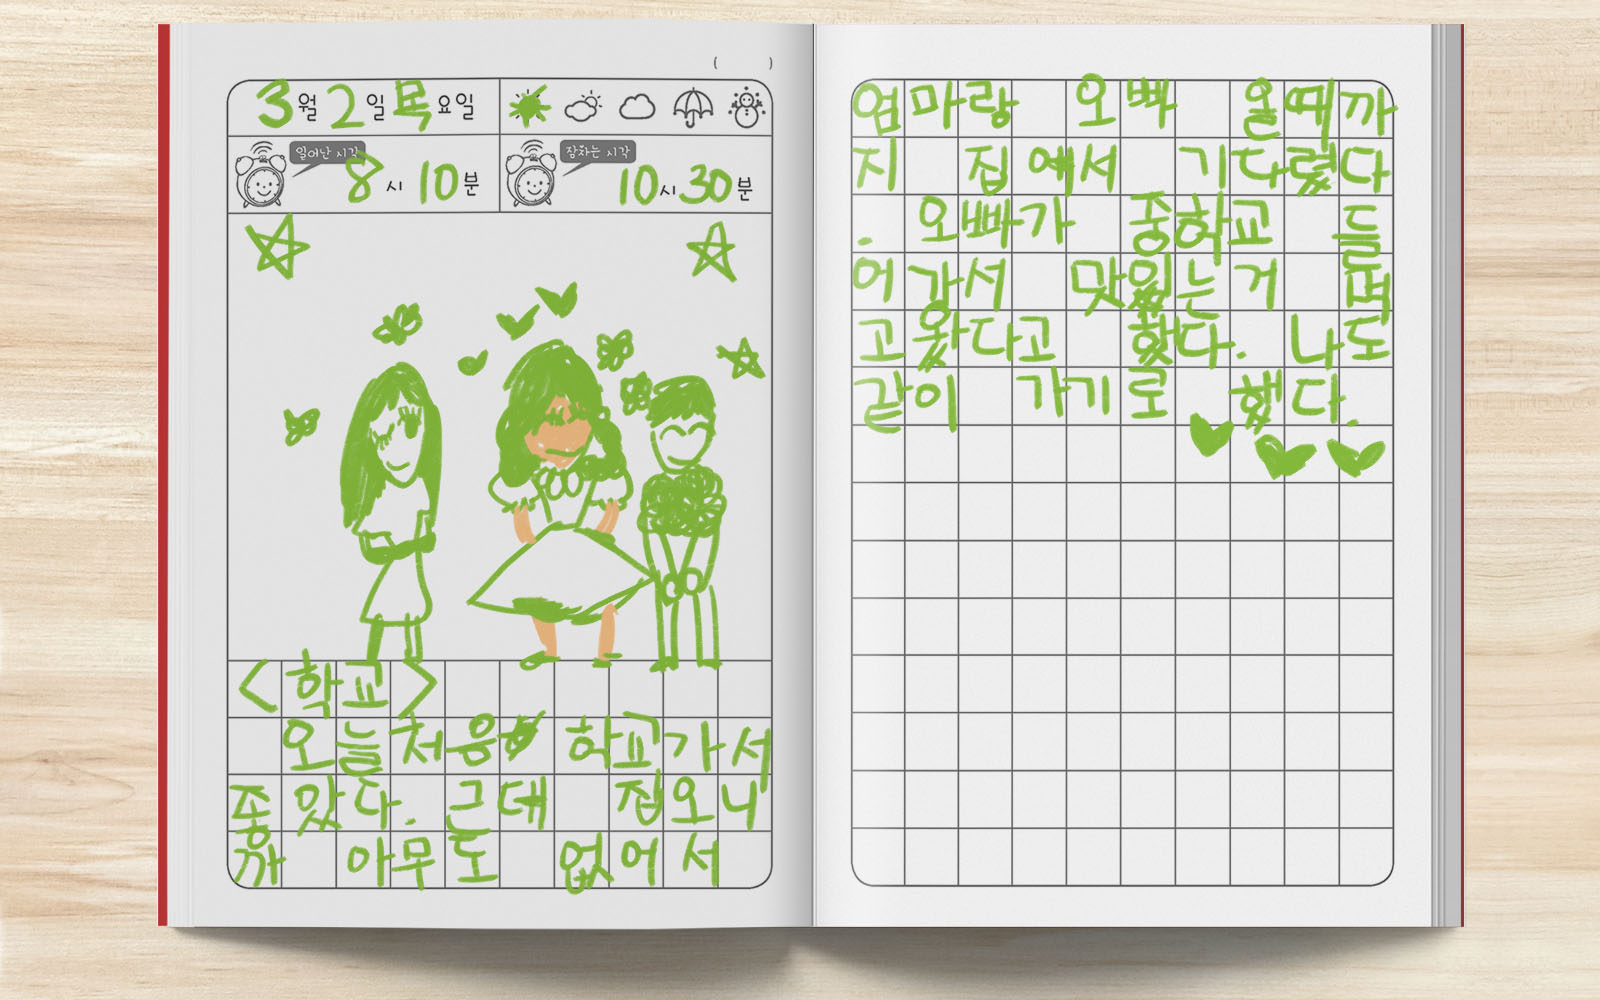 3월 2일 목요일
일어난 시각 8시 10분 잠자는 시각 10시 30분
<학교>
오늘처음 학교가서
좋았다. 근데 집오니
까 아무도 없어서
엄마랑 오빠 올때까
지 집에서 기다렸다
. 오빠가 중학교 들
어가서 맛있는거 먹
고왔다고 했다. 나도
같이 가기로 했다.